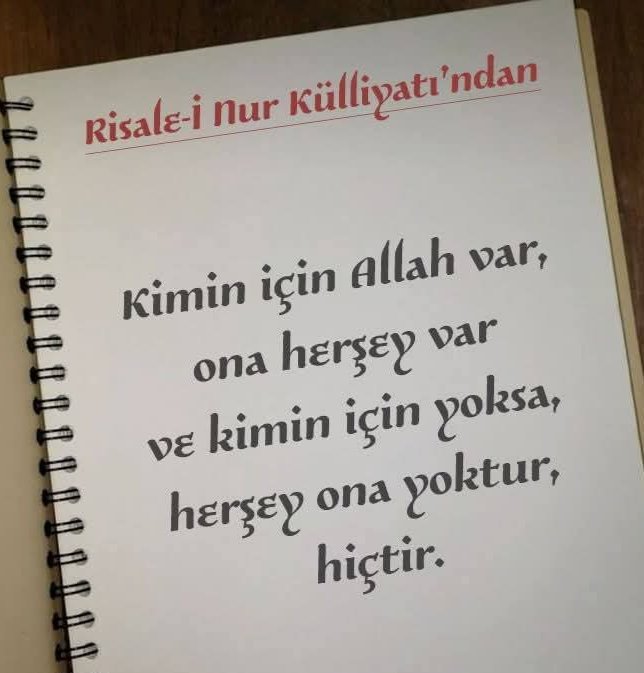 Risale-i Nur Külliyatı'ndan
Kimin için Allah var,
ona herşey var
ve kimin için yoksa,
herşey ona yoktur,
hiçtir.